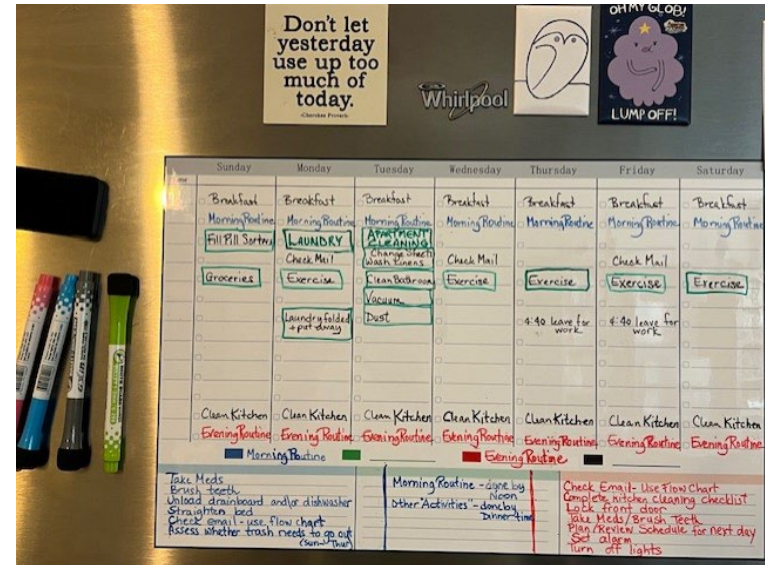 Don't let
yesterday
use up too
much of
today.
-Cherokee Proverb-
Whirlpool
OH MY GLOB!
LUMP OFF!
Sunday Monday Tuesday Wednesday Thursday Friday Saturday
Breakfast Breakfast Breakfast Breakfast Breakfast Breakfast Breakfast
Morning Routine Morning Routine Morning Routine Morning Routine Morning Routine Morning Routine Morning Routine
Fill Pill Sorters LAUNDRY APARTMENT
CLEANING
Check Mail Change Sheets Check Mail Check Mail
Wash Linens
Groceries Exercise Clean Bathroom Exercise Exercise Exercise Exercise
Vacuum
Laundry folded Dust 4:40 leave for 4:40 leave for
+ put away work work
Clean Kitchen Clean Kitchen Clean Kitchen Clean Kitchen Clean Kitchen Clean Kitchen Clean Kitchen
Evening Routine Evening Routine Evening Routine Evening Routine Evening Routine Evening Routine Evening Routine
Morning Routine Evening Routine
Take Meds
Brush teeth
Unload drainboard and/or dishwasher
Straighten bed
Check email - use flow chart
Assess whether trash needs to go out
(Sun - Thur)
Morning Routine - done by
Noon
Other "Activities" - done by
Dinner time
Check Email - Use Flow Chart
Complete kitchen cleaning checklist
Lock front door
Take Meds/Brush Teeth
Plan/Review Schedule for next day
Set alarm
Turn off lights